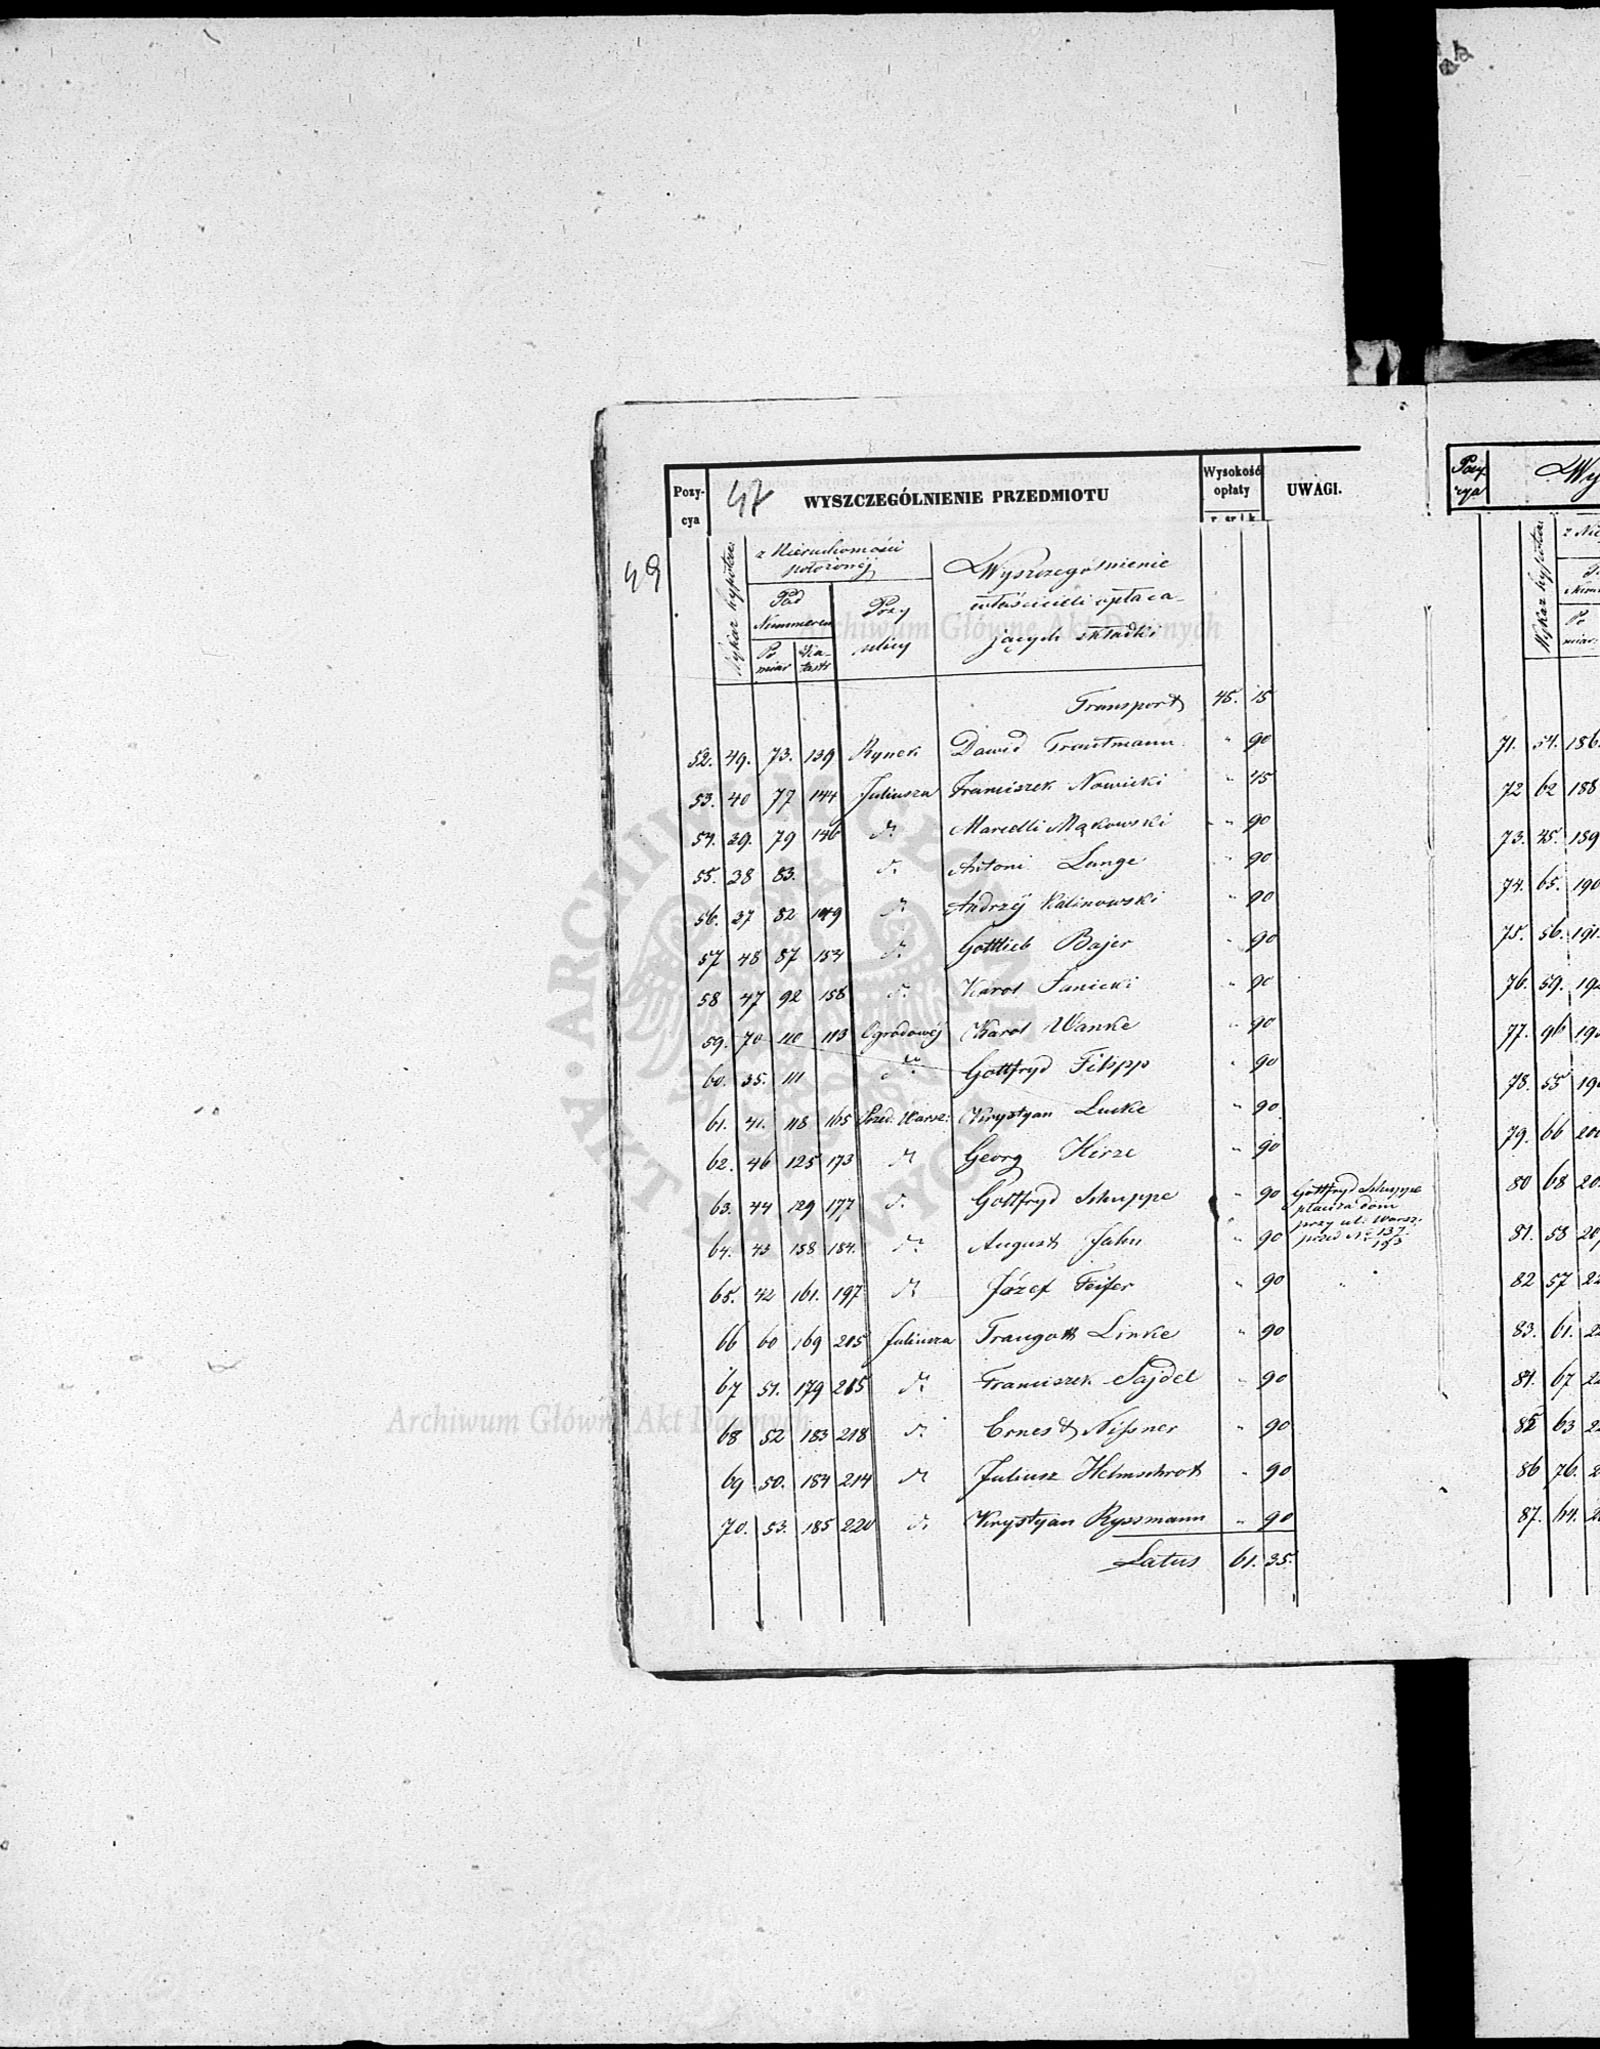 47
49
Pozy-
cya
WYSZCZEGÓLNIENIE PRZEDMIOTU
Wysokość
opłaty
r. sr. k.
UWAGI.
Wykaz hypotec.
z Nieruchomości
położonej
Pod
Nummerem
Po
miar
Ka-
tastr
Przy
ulicy
Wyszczególnienie
właścicieli opłaca-
jących składki
Transport 45. 15
52. 49. 73. 139 Rynek Dawid Trautmann " 90
53. 40 77 144 Juliusza Franciszek Nowicki " 45
54. 39. 79 146 d. Marcelli Mąkowski " 90
55. 38 83. d. Antoni Lange " 90
56. 37 82 149 d. Andrzéj Kalinowski " 90
57 48 87 154 d. Gottlieb Bajer " 90
58 47 92 158 d. Karol Janicki " 90
59. 70 110 113 Ogrodowéj Karol Wanke " 90
60. 35. 111 d. Gottfryd Filipp " 90
61. 41. 118 165 Przed. Warsz: Krystyan Lucke " 90
62. 46 125 173 d. Georg Hirze " 90
63. 44 129 177 d. Gottfryd Schuppe " 90 Gottfryd Schuppe
płaci za dom
przy ul: Warsz:
przed No 137.
193
64. 43 158 184. d. August Jahn " 90
65. 42 161. 197 d. Józef Feifer " 90
66 60 169 205 Juliusza Traugott Linke " 90
67 51. 179 215 d. Franciszek Sajdel " 90
68 52 183 218 d. Ernest Nissner " 90
69 50. 184 214 d. Juliusz Helmschrott " 90
70. 53. 185 220 d. Krystyan Ryssmann " 90
Latus 61. 35.
Pozy
cya
Wy
Wykaz hypotec.
z Nie
Po
miar.
71. 54. 186.
72 62 188
73. 45. 189
74. 65. 190
75. 56. 191.
76. 59. 192
77. 96 19
78. 55 19
79. 66 200
80 68 20
81. 58 20
82 57 2
83. 61. 2
84. 67 2
85 63 2
86 76. 2
87. 64. 2
Archiwum Główne Akt Dawnych
Archiwum Główne Akt Dawnych